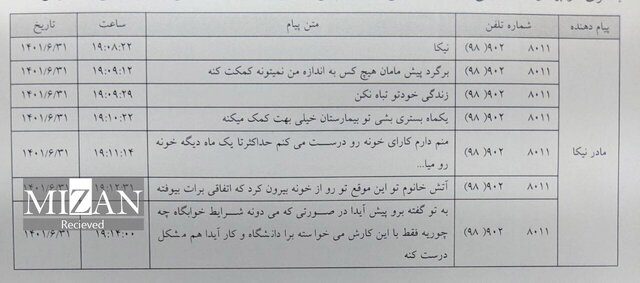 پیام دهنده شماره تلفن متن پیام ساعت تاریخ
مادر نیکا
۸۰۱۱ ۹۰۲(۹۸) نیکا ۱۹:۰۸:۲۲ ۱۴۰۱/۶/۳۱
۸۰۱۱ ۹۰۲(۹۸) برگرد پیش مامان هیچ کس به اندازه من نمیتونه کمکت کنه ۱۹:۰۹:۱۲ ۱۴۰۱/۶/۳۱
۸۰۱۱ ۹۰۲(۹۸) زندگی خودتو تباه نکن ۱۹:۰۹:۲۹ ۱۴۰۱/۶/۳۱
۸۰۱۱ ۹۰۲(۹۸) یکماه بستری بشی تو بیمارستان خیلی بهت کمک میکنه ۱۹:۱۰:۲۲ ۱۴۰۱/۶/۳۱
۸۰۱۱ ۹۰۲(۹۸) منم دارم کارای خونه رو درست می کنم حداکثرتا یک ماه دیگه خونه
رو میا... ۱۹:۱۱:۱۴ ۱۴۰۱/۶/۳۱
۸۰۱۱ ۹۰۲(۹۸) آتش خانوم تو این موقع تو رو از خونه بیرون کرد که اتفاقی برات بیوفته ۱۹:۱۲:۳۱ ۱۴۰۱/۶/۳۱
۸۰۱۱ ۹۰۲(۹۸) به تو گفته برو پیش آیدا در صورتی که می دونه شرایط خوابگاه چه
جوریه فقط با این کارش می خواسته برا دانشگاه و کار آیدا هم مشکل
درست کنه ۱۹:۱۴:۰۰ ۱۴۰۱/۶/۳۱
MIZAN
Recieved